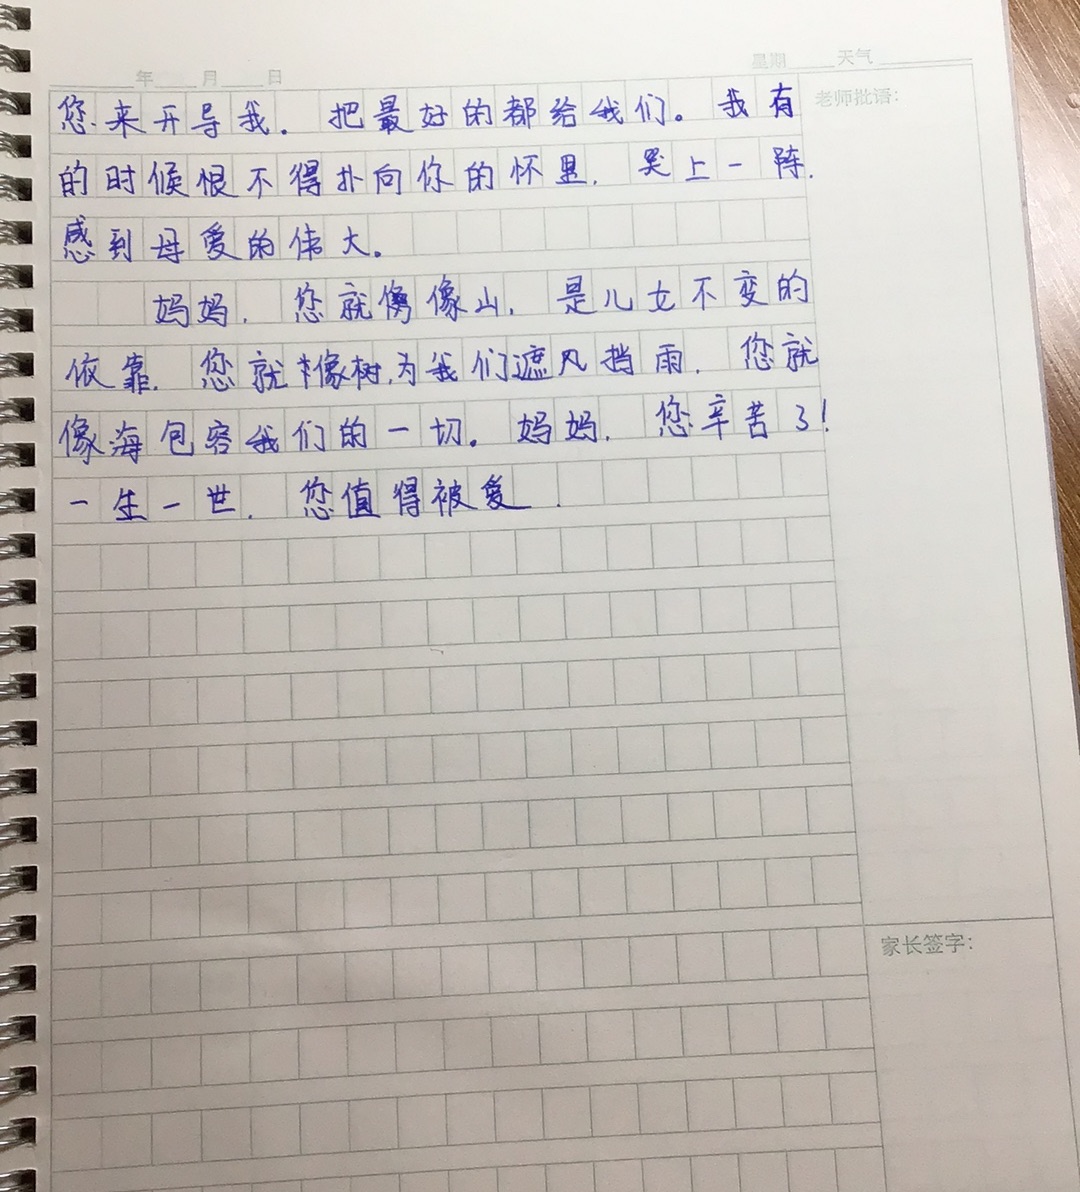 年 月 日 星期 天气
老师批语：
您来开导我. 把最好的都给我们。我有
的时候恨不得扑向你的怀里, 哭上一阵.
感到母爱的伟大。
妈妈, 您就像山, 是儿女不变的
依靠. 您就像树,为我们遮风挡雨. 您就
像海包容我们的一切。妈妈, 您辛苦了!
一生一世, 您值得被爱.
家长签字：